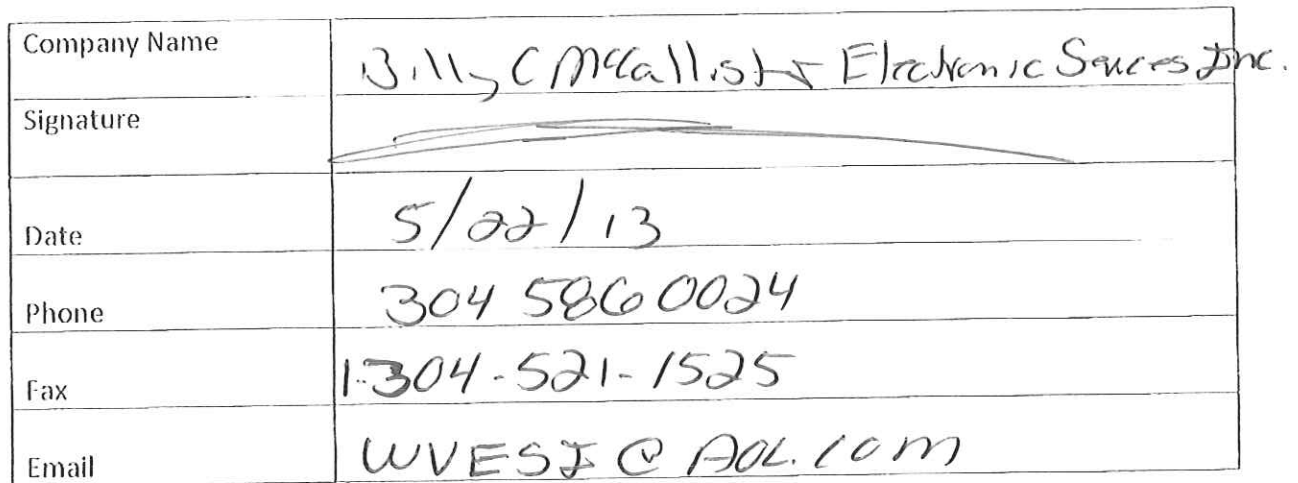 Company Name Billy C McCallister Electronic Services Inc.
Signature
Date 5/22/13
Phone 304 586 0024
Fax 1-304-521-1525
Email WVESI@AOL.COM